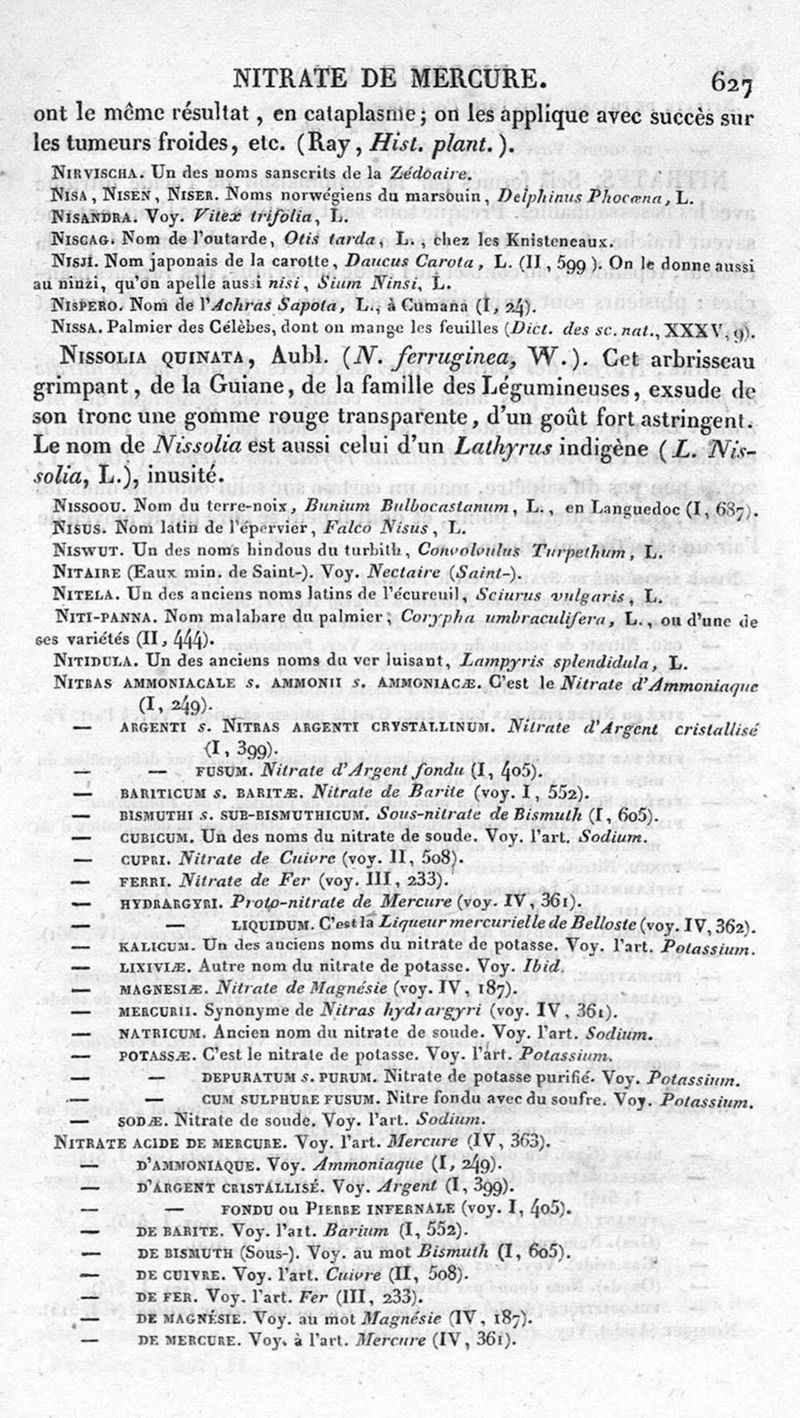 NITRATE DE MERCURE. 627
ont le même résultat, en cataplasme; on les applique avec succès sur
les tumeurs froides, etc. (Ray, Hist. plant.).
NIRVISCHA. Un des noms sanscrits de la Zédoaire.
NISA, NISEN, NISER. Noms norwégiens du marsouin, Delphinus Phocæna, L.
NISANDRA. Voy. Vitex trifolia, L.
NISCAG. Nom de l'outarde, Otis tarda, L., chez les Knisteneaux.
NISJI. Nom japonais de la carotte, Daucus Carota, L. (II, 599). On le donne aussi
au ninzi, qu'on apelle aussi nisi, Sium Ninsi, L.
NISPERO. Nom de l'Achras Sapota, L., à Cumana (I, 24).
NISSA. Palmier des Célèbes, dont on mange les feuilles (Dict. des sc. nat., XXXV, 9).
NISSOLIA QUINATA, Aubl. (N. ferruginea, W.). Cet arbrisseau
grimpant, de la Guiane, de la famille des Légumineuses, exsude de
son tronc une gomme rouge transparente, d'un goût fort astringent.
Le nom de Nissolia est aussi celui d'un Lathyrus indigène (L. Nis-
solia, L.), inusité.
NISSOOU. Nom du terre-noix, Bunium Bulbocastanum, L., en Languedoc (I, 687).
NISUS. Nom latin de l'épervier, Falco Nisus, L.
NISWUT. Un des noms hindous du turbith, Convolvulus Turpethum, L.
NITAIRE (Eaux min. de Saint-). Voy. Nectaire (Saint-).
NITELA. Un des anciens noms latins de l'écureuil, Sciurus vulgaris, L.
NITI-PANNA. Nom malabare du palmier, Corypha umbraculifera, L., ou d'une de
ses variétés (II, 444).
NITIDULA. Un des anciens noms du ver luisant, Lampyris splendidula, L.
NITRAS AMMONIACALE s. AMMONII s. AMMONIACÆ. C'est le Nitrate d'Ammoniaque
(I, 249).
— ARGENTI s. NITRAS ARGENTI CRYSTALLINUM. Nitrate d'Argent cristallisé
(I, 399).
— — FUSUM. Nitrate d'Argent fondu (I, 405).
— BARITICUM s. BARITÆ. Nitrate de Barite (voy. I, 552).
— BISMUTHI s. SUB-BISMUTHICUM. Sous-nitrate de Bismuth (I, 605).
— CUBICUM. Un des noms du nitrate de soude. Voy. l'art. Sodium.
— CUPRI. Nitrate de Cuivre (voy. II, 508).
— FERRI. Nitrate de Fer (voy. III, 233).
— HYDRARGYRI. Proto-nitrate de Mercure (voy. IV, 361).
— — LIQUIDUM. C'est la Liqueur mercurielle de Belloste (voy. IV, 362).
— KALICUM. Un des anciens noms du nitrate de potasse. Voy. l'art. Potassium.
— LIXIVIÆ. Autre nom du nitrate de potasse. Voy. Ibid.
— MAGNESIÆ. Nitrate de Magnésie (voy. IV, 187).
— MERCURII. Synonyme de Nitras hydrargyri (voy. IV, 361).
— NATRICUM. Ancien nom du nitrate de soude. Voy. l'art. Sodium.
— POTASSÆ. C'est le nitrate de potasse. Voy. l'art. Potassium.
— — DEPURATUM s. PURUM. Nitrate de potasse purifié. Voy. Potassium.
— — CUM SULPHURE FUSUM. Nitre fondu avec du soufre. Voy. Potassium.
— SODÆ. Nitrate de soude. Voy. l'art. Sodium.
NITRATE ACIDE DE MERCURE. Voy. l'art. Mercure (IV, 363).
— D'AMMONIAQUE. Voy. Ammoniaque (I, 249).
— D'ARGENT CRISTALLISÉ. Voy. Argent (I, 399).
— — FONDU OU PIERRE INFERNALE (voy. I, 405).
— DE BARITE. Voy. l'art. Barium (I, 552).
— DE BISMUTH (Sous-). Voy. au mot Bismuth (I, 605).
— DE CUIVRE. Voy. l'art. Cuivre (II, 508).
— DE FER. Voy. l'art. Fer (III, 233).
— DE MAGNÉSIE. Voy. au mot Magnésie (IV, 187).
— DE MERCURE. Voy. à l'art. Mercure (IV, 361).